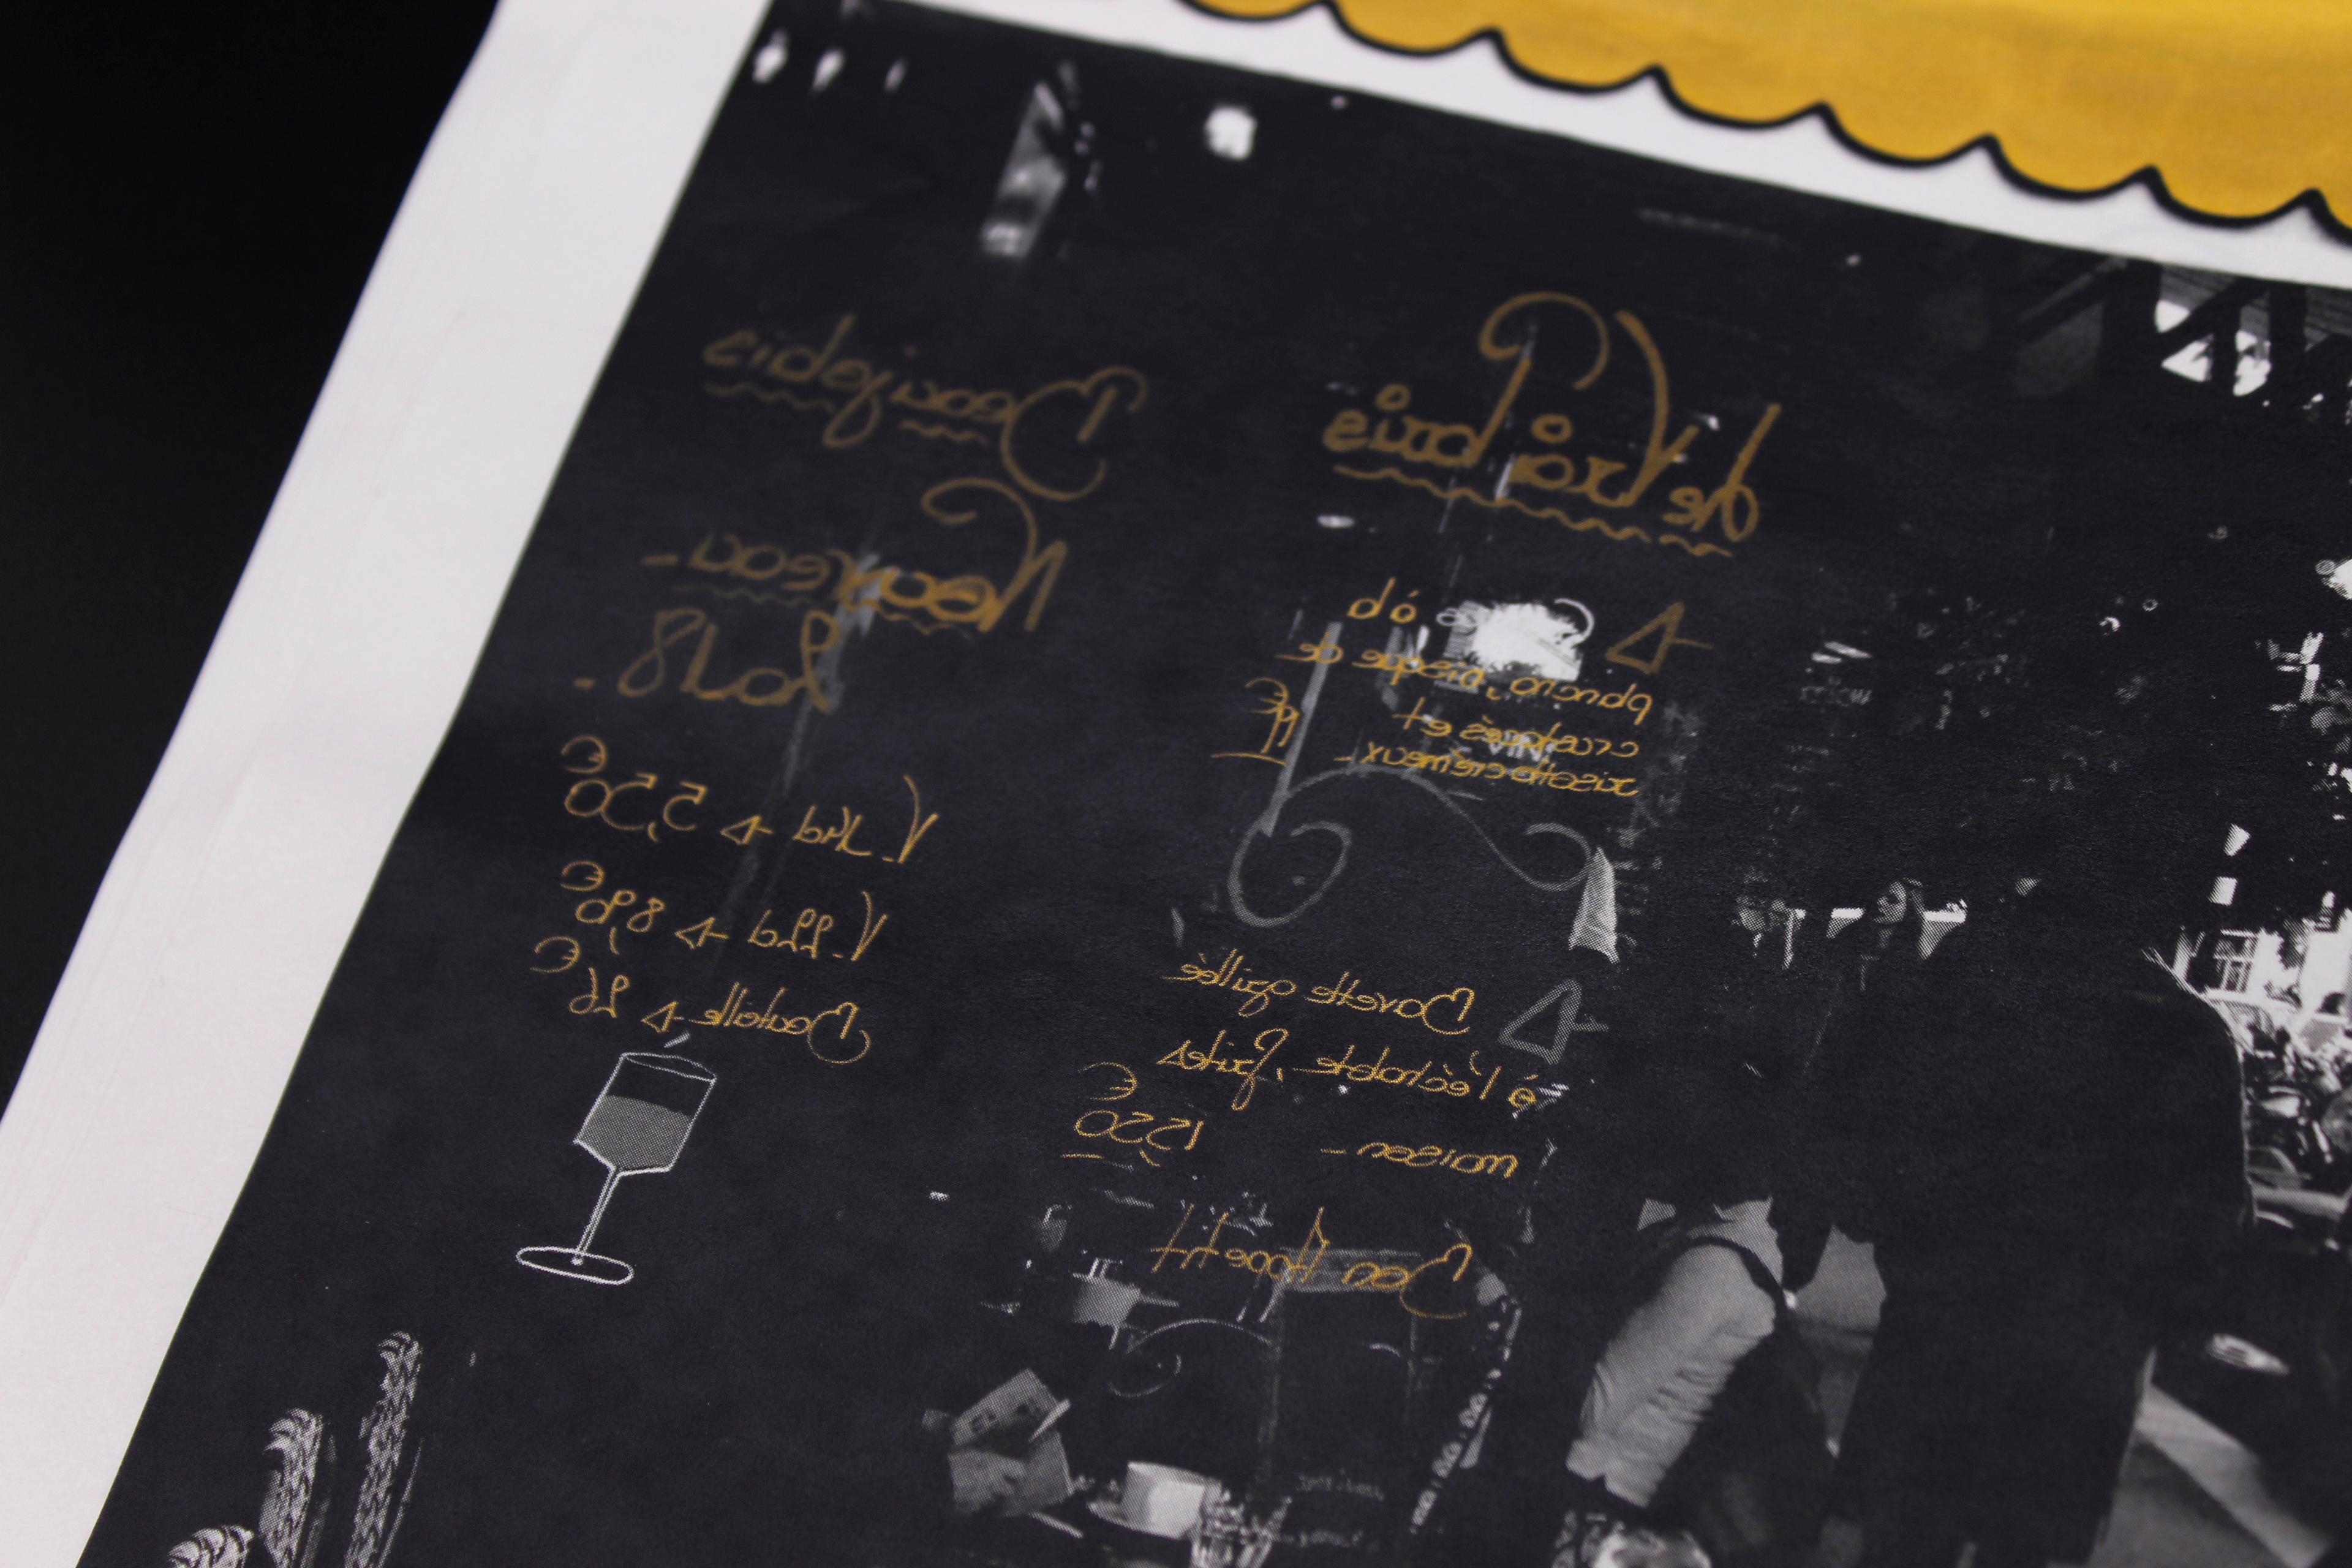 Le Vrai Paris
à la
plancha, bisque de
crustacés et
risotto crémeux - 19€
Bavette grillée
à l'échalote, frites
maison - 15,50€
Bon Appétit
Beaujolais
Nouveau -
2018.
V. 14cl → 5,50€
V. 22cl → 8,90€
Bouteille → 26€